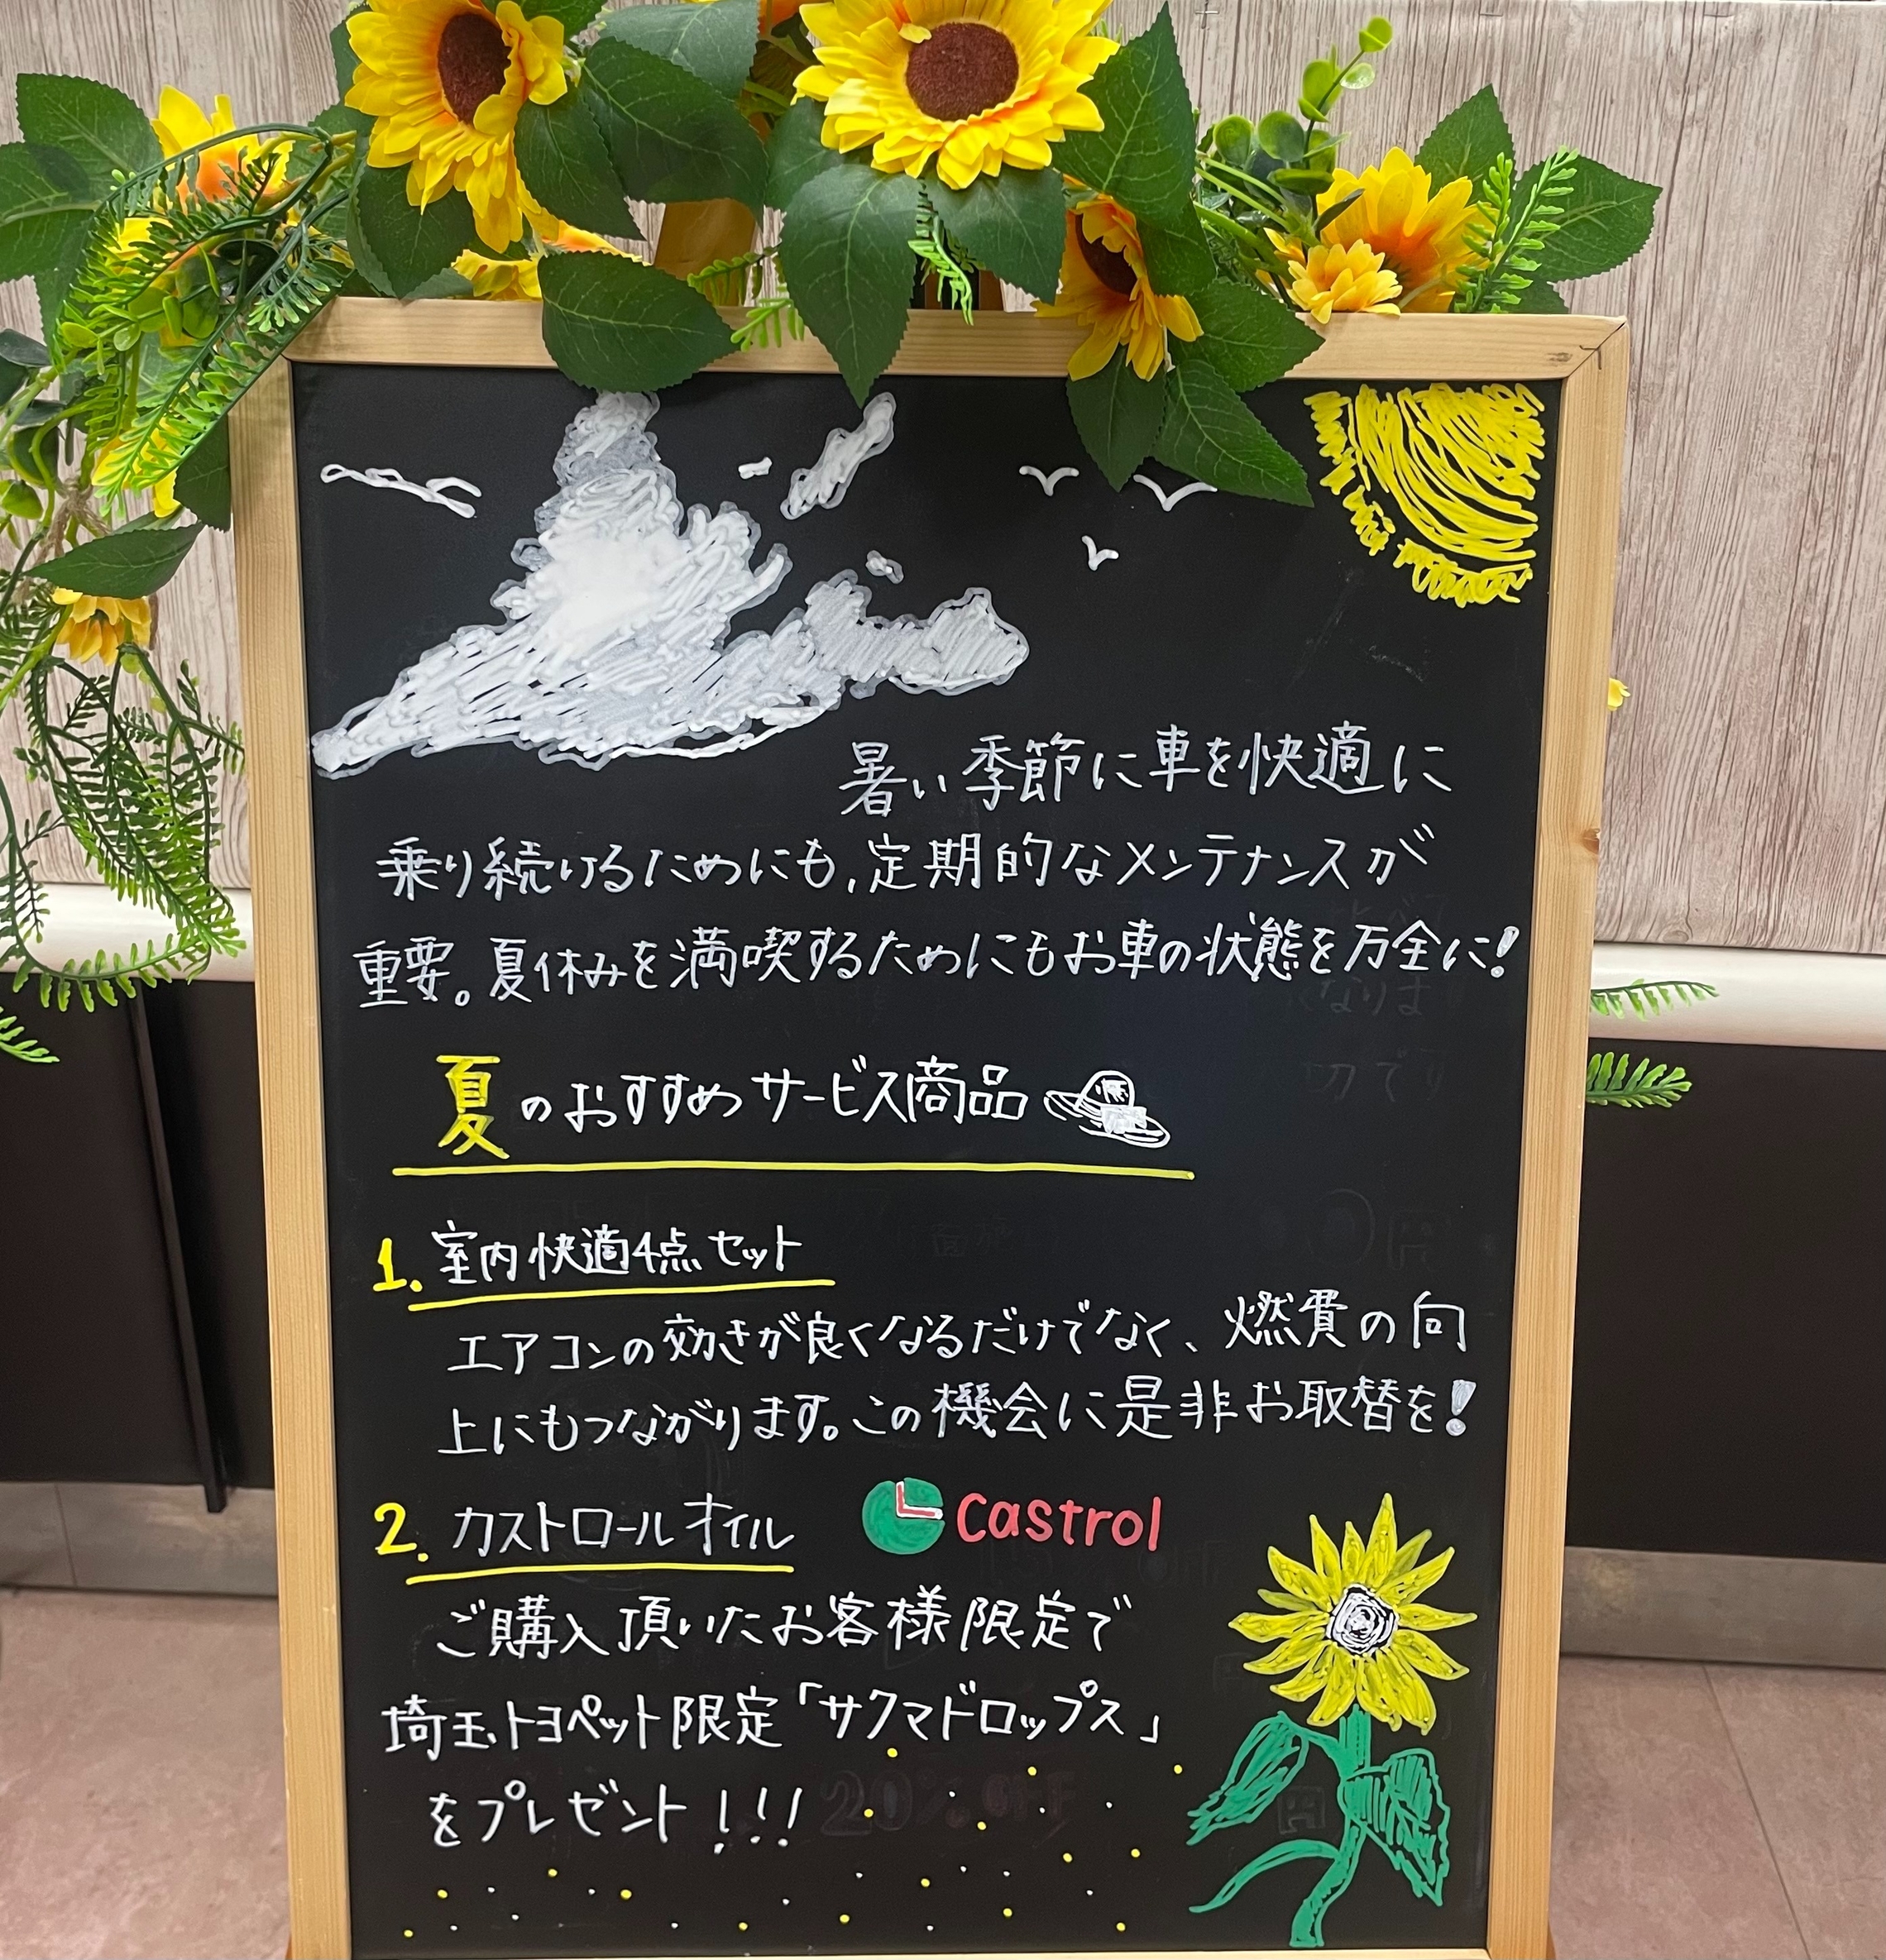 暑い季節に車を快適に
乗り続けるためにも,定期的なメンテナンスが
重要。夏休みを満喫するためにもお車の状態を万全に!
夏のおすすめサービス商品
1.室内快適4点セット
エアコンの効きが良くなるだけでなく、燃費の向
上にもつながります。この機会に是非お取替を!
2.カストロールオイル Castrol
ご購入頂いたお客様限定で
埼玉トヨペット限定「サクマドロップス」
をプレゼント!!!
20% OFF